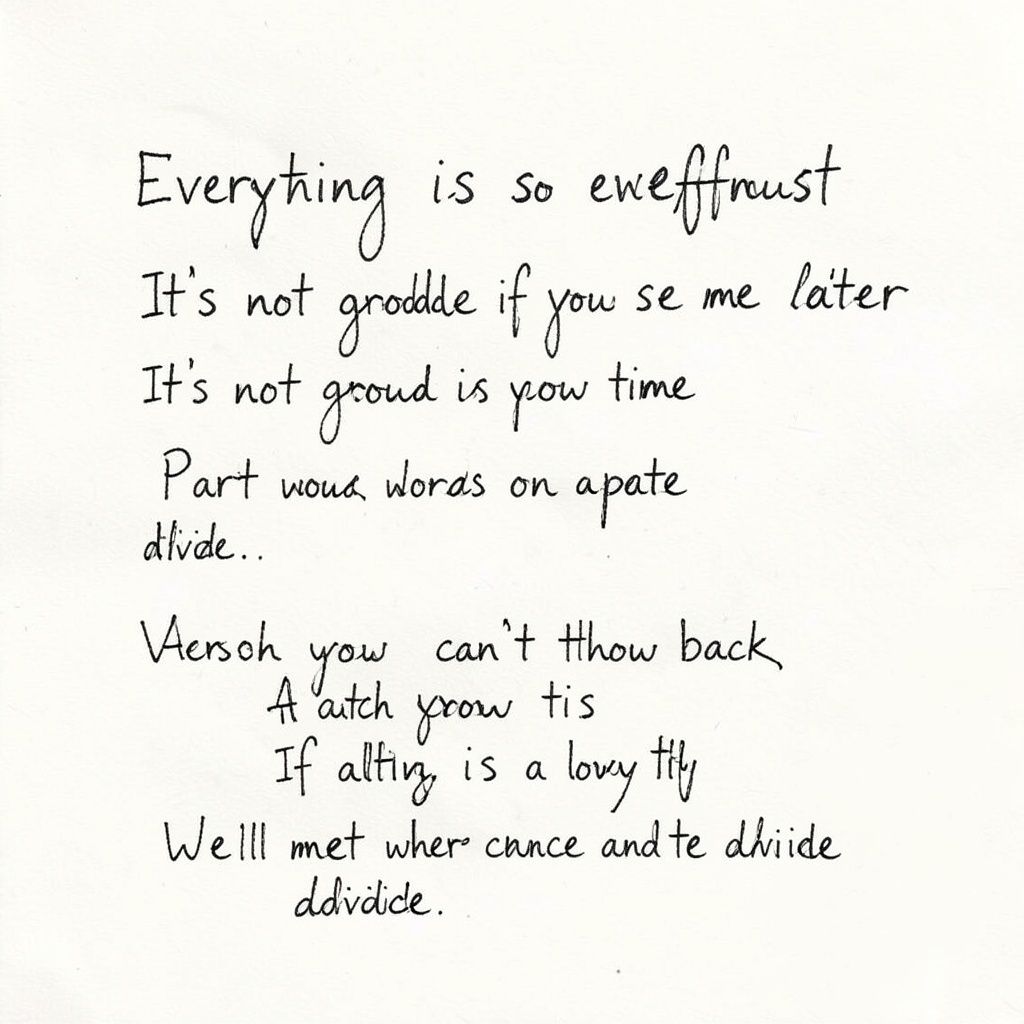 Everything is so eweffrust
It's not groddde if you se me later
It's not groud is yow time
Part words on apate
dlvide..
yow can't thow back
A autch yrow tis
If is a lowy
Welll met wher cnnce and te dhiide
ddvidide.